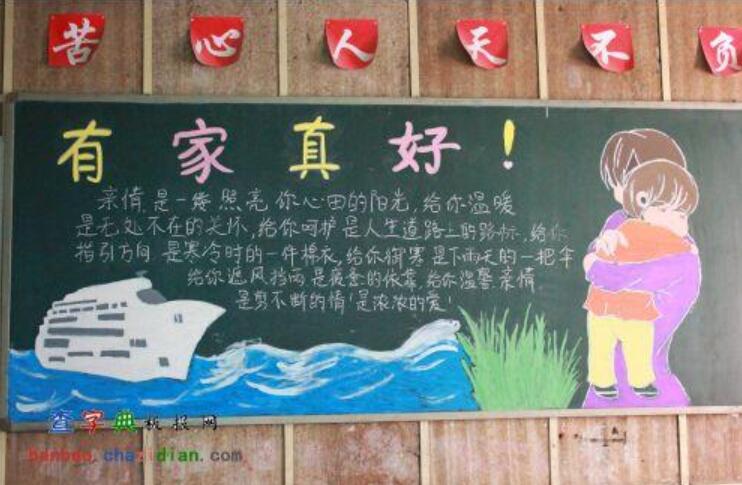 苦心人天不负
有家真好!
亲情,是一缕照亮你心田的阳光,给你温暖
是无处不在的关怀,给你呵护是人生道路上的路标,给你
指引方向 是寒冷时的一件棉衣,给你御寒是下雨天的一把伞
给你遮风挡雨是疲惫的依靠,给你温馨亲情
是剪不断的情!是浓浓的爱!
查字典板报网
banbao.chazidian.com